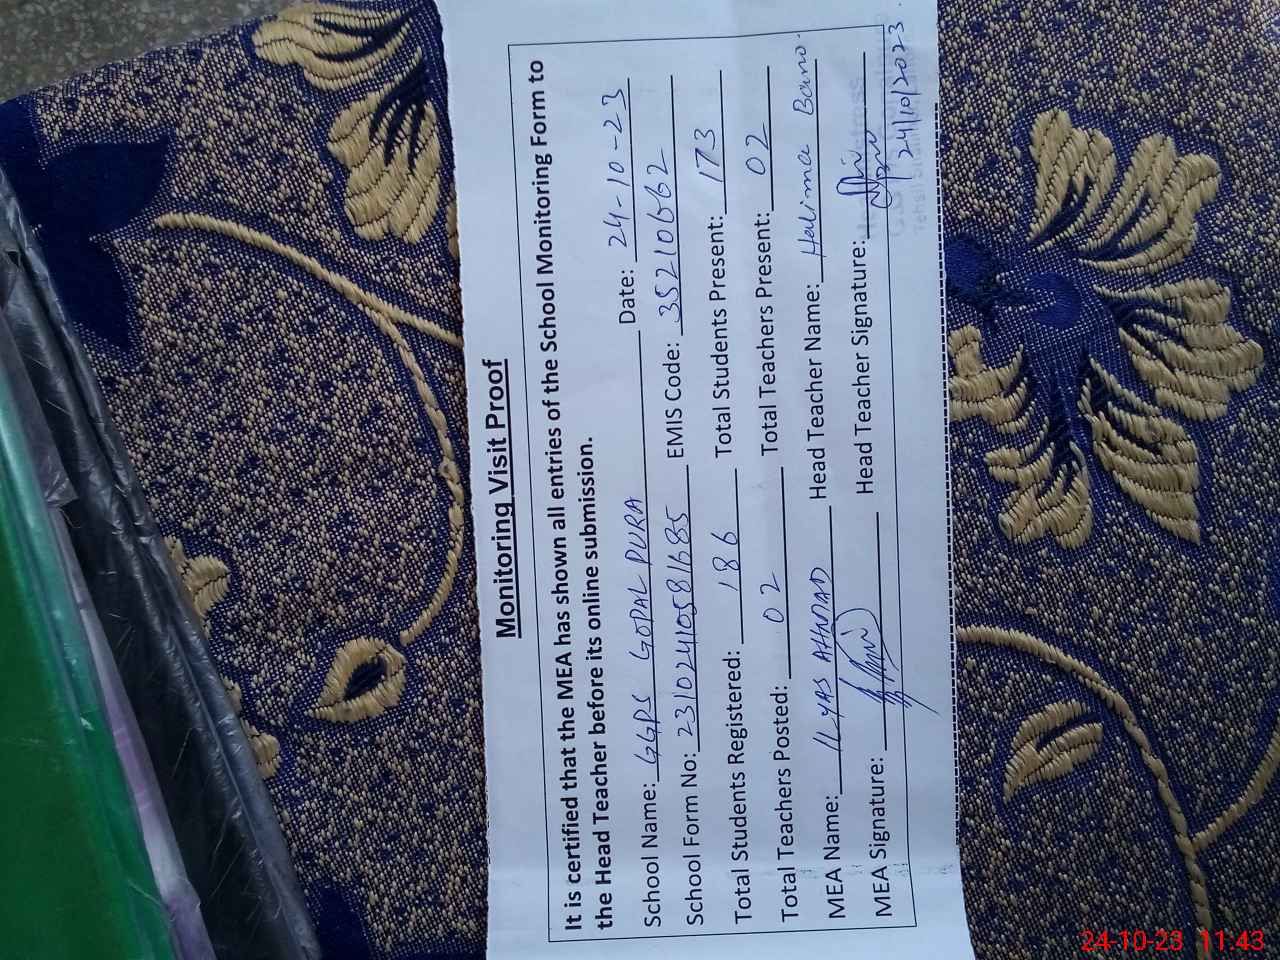 Monitoring Visit Proof
It is certified that the MEA has shown all entries of the School Monitoring Form to
the Head Teacher before its online submission.
School Name: GGPS GOPAL PURA Date: 24-10-23
School Form No: 23102410581685 EMIS Code: 35210662
Total Students Registered: 186 Total Students Present: 173
Total Teachers Posted: 02 Total Teachers Present: 02
MEA Name: ILYAS AHMAD Head Teacher Name: Halima Bano.
MEA Signature: Head Teacher Signature:
24/10/2023.
24-10-23 11:43